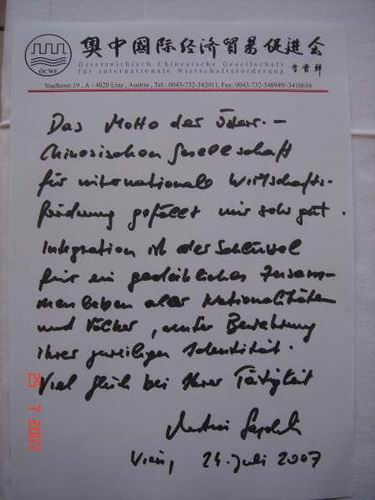 奥中國际经济貿易促進会
ÖCWE
Österreichisch Chinesische Gesellschaft
für internationale Wirtschaftsförderung
Stadlerstr.19, A - 4020 Linz, Austria, Tel.: 0043-732-342011, Fax: 0043-732-348949/ 3410634
Das Motto der Österr.–
Chinesischen Gesellschaft
für internationale Wirtschafts-
förderung gefällt mir sehr gut.
Integration ist der Schlüssel
für ein gedeihliches Zusam-
menleben aller Nationalitäten
und Völker, unter Bewahrung
ihrer jeweiligen Identität.
Viel Glück bei Ihrer Tätigkeit
Wien, 24. Juli 2007
25 7 2007